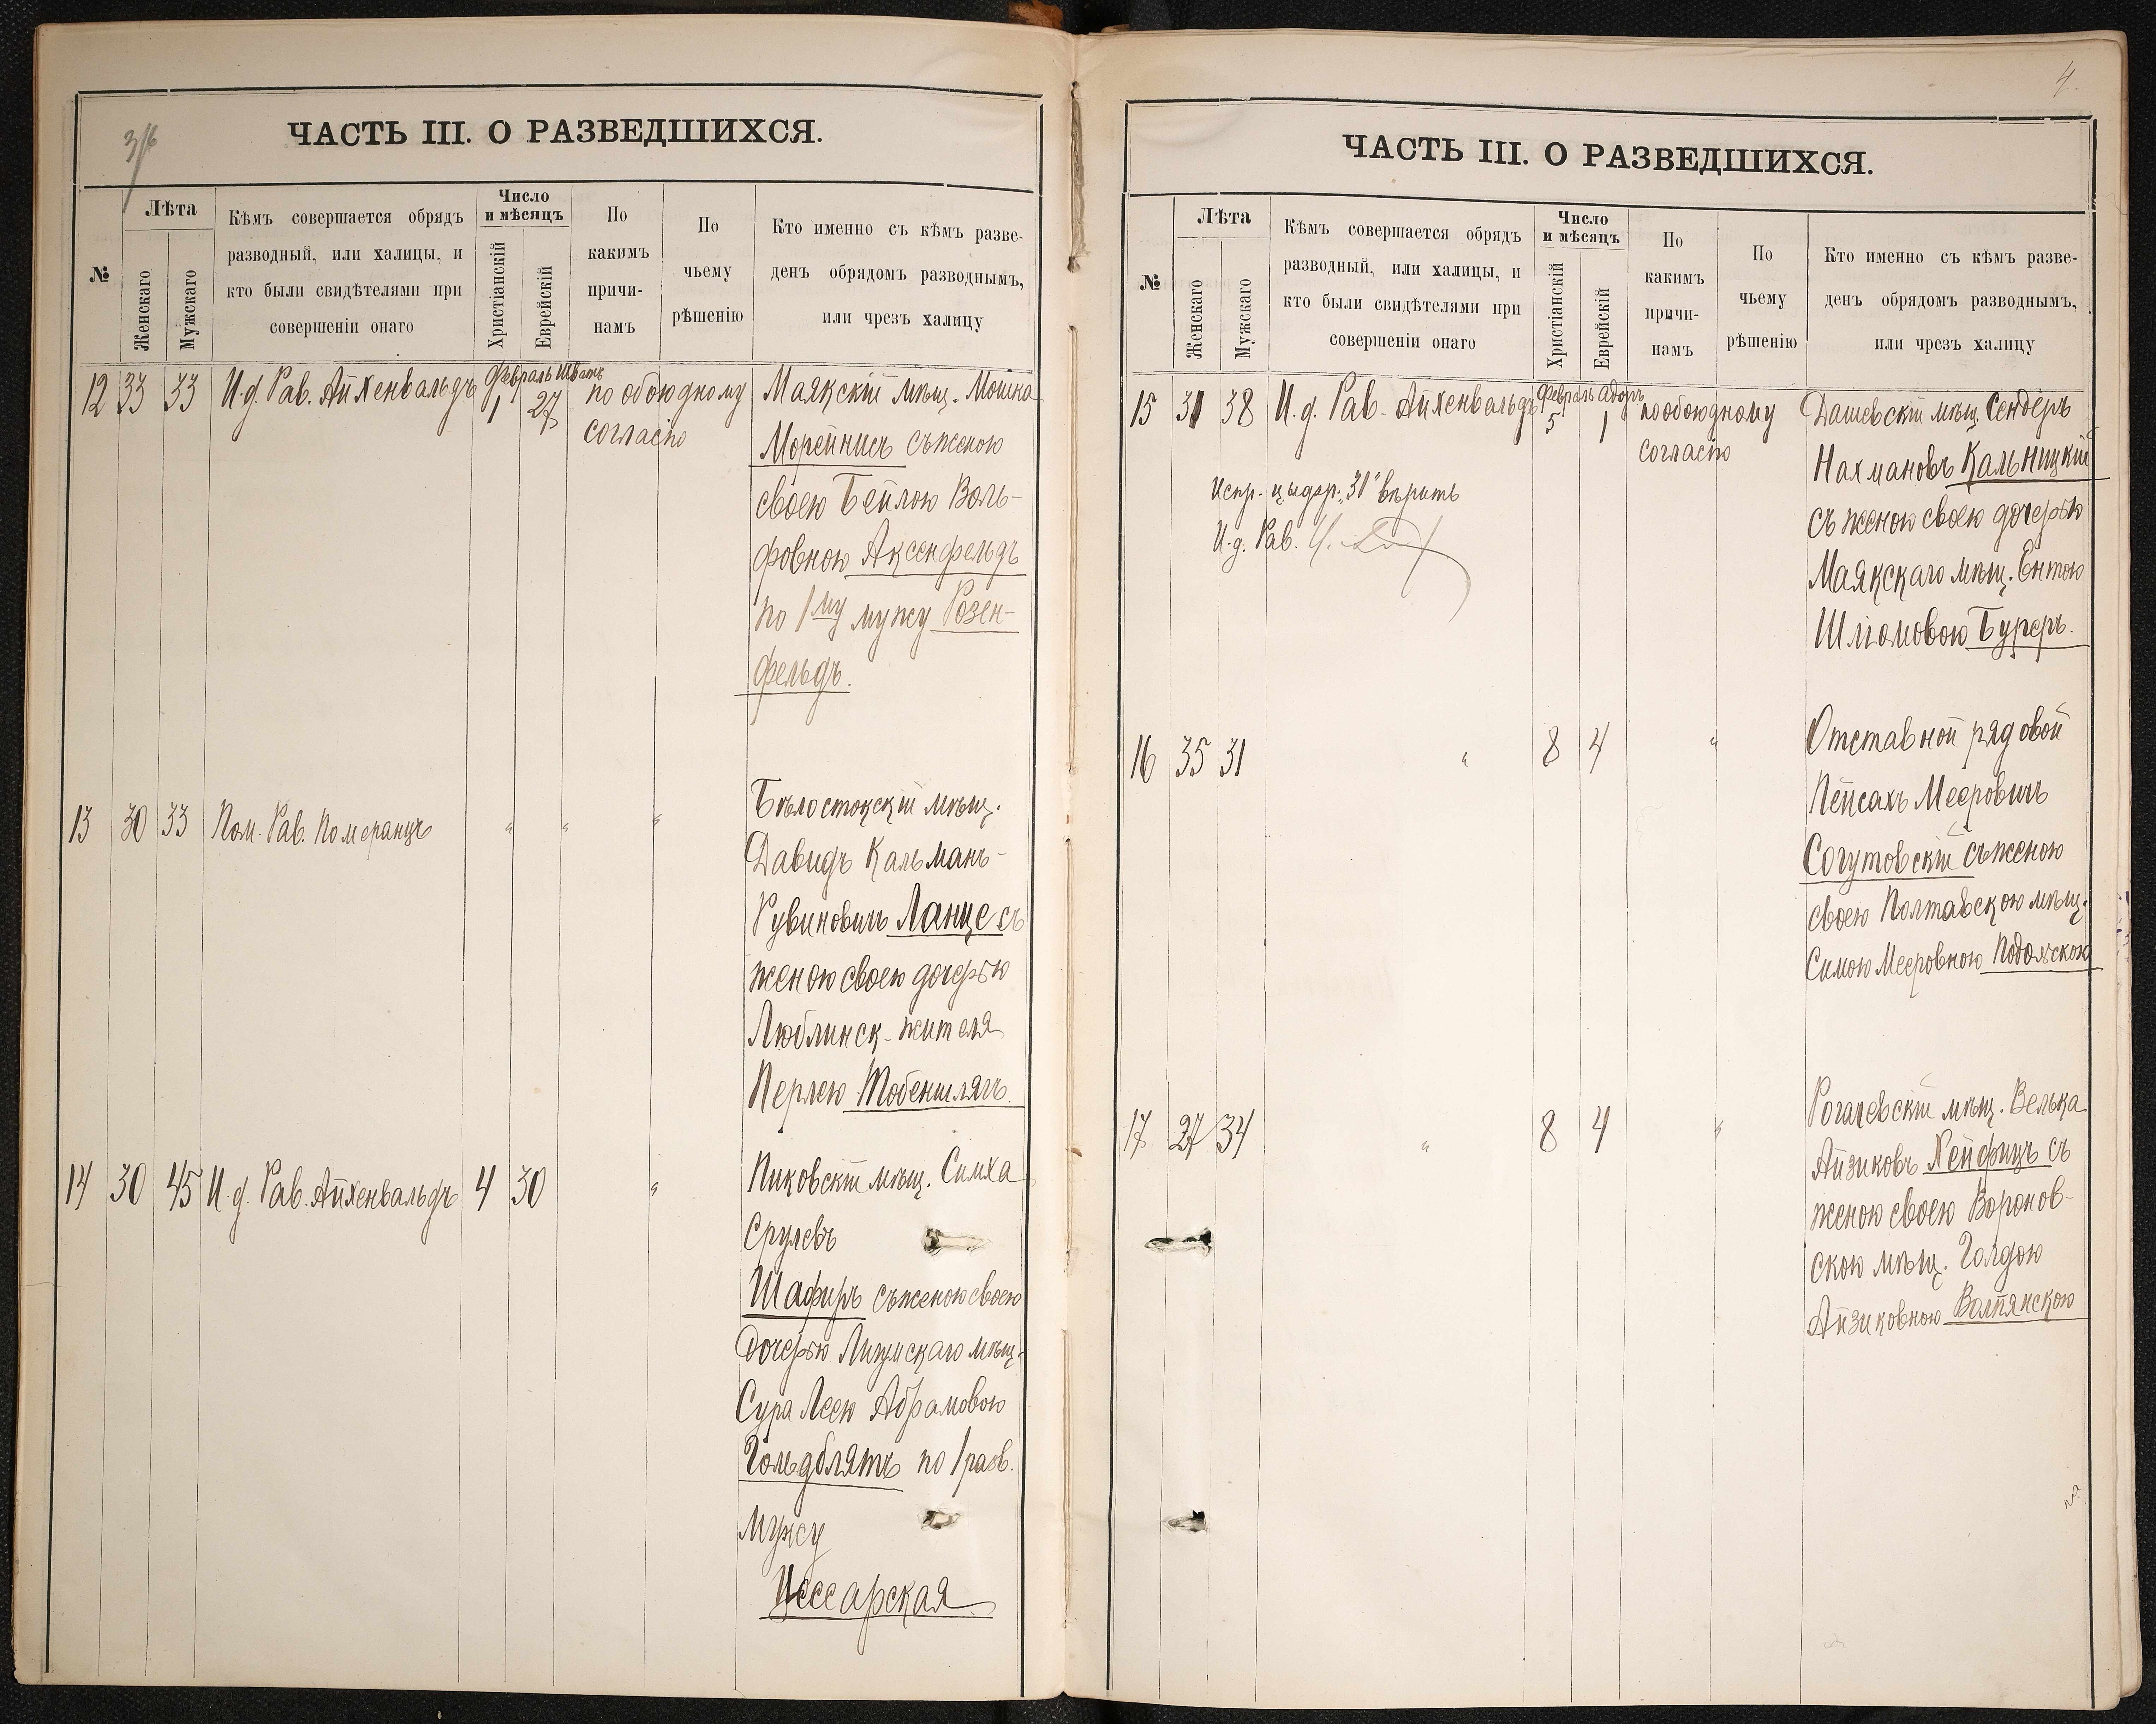 3/6
ЧАСТЬ III. О РАЗВЕДШИХСЯ.
№
Лѣта
Женскаго
Мужскаго
Кѣмъ совершается обрядъ
разводный, или халицы, и
кто были свидѣтелями при
совершеніи онаго
Число
и мѣсяцъ
Христіанскій
Еврейскій
По
какимъ
причи-
намъ
По
чьему
рѣшенію
Кто именно съ кѣмъ разве-
денъ обрядомъ разводнымъ,
или чрезъ халицу
12 33 33 И.д. Рав. Айхенвальдъ Февраль 1 Шватъ 27 по обоюдному
согласію
Маякскій мѣщ. Мошка
Морейнисъ съ женою
своею Бейлою Воль-
фовною Аксенфельдъ
по 1му мужу Розен-
фельдъ.
13 30 33 Пом. Рав. Померанцъ " " "
Бѣлостокскій мѣщ.
Давидъ Кальманъ-
Рувиновичъ Ланце съ
женою своею дочерью
Люблинск. жителя
Перлею Тобеншлягъ.
14 30 45 И.д. Рав. Айхенвальдъ 4 30 "
Пиковскій мѣщ. Симха
Срулевъ
Шафиръ съ женою своею
дочерью мѣщ.
Сура Леею Абрамовою
Гольдблятъ по 1 разв.
мужу
Цессарская
4.
ЧАСТЬ III. О РАЗВЕДШИХСЯ.
№
Лѣта
Женскаго
Мужскаго
Кѣмъ совершается обрядъ
разводный, или халицы, и
кто были свидѣтелями при
совершеніи онаго
Число
и мѣсяцъ
Христіанскій
Еврейскій
По
какимъ
причи-
намъ
По
чьему
рѣшенію
Кто именно съ кѣмъ разве-
денъ обрядомъ разводнымъ,
или чрезъ халицу
15 31 38 И.д. Рав. Айхенвальдъ Февраль 5 Адоръ 1 по обоюдному
согласію
Испр. цыфр. „31“ вѣрить
И.д. Рав.
Дашевскій мѣщ. Сендеръ
Нахмановъ Кальницкій
съ женою своею дочерью
Маякскаго мѣщ. Ентою
Шліомовою Буреръ.
16 35 31 " 8 4 "
Отставной рядовой
Пейсахъ Мееровичъ
Согутовскій съ женою
своею Полтавскою мѣщ.
Симою Мееровною Подольскою
17 27 34 " 8 4 "
Рогачевскій мѣщ. Велька
Айзиковъ Хейфицъ съ
женою своею Воронов-
скою мѣщ. Голдою
Айзиковною Волпянскою